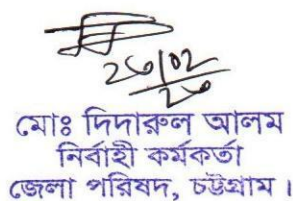 ২৩/০২
২৩
মোঃ দিদারুল আলম
নির্বাহী কর্মকর্তা
জেলা পরিষদ, চট্টগ্রাম।